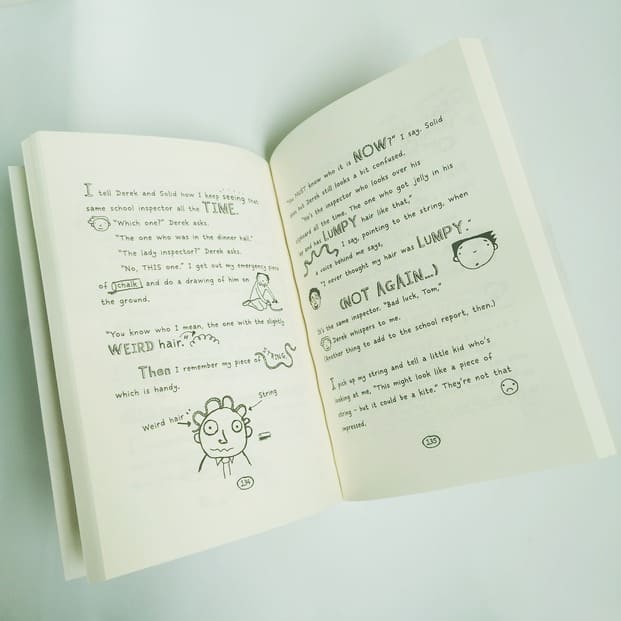 I tell Derek and Solid how I keep seeing that
same school inspector all the TIME.
"Which one?" Derek asks.
"The one who was in the dinner hall."
"The lady inspector?" Derek asks.
"No, THIS one." I get out my emergency piece
of chalk and do a drawing of him on
the ground.
"You know who I mean, the one with the slightly
WEIRD hair."
Then I remember my piece of STRING,
which is handy.
Weird hair
String
134
"You MUST know who it is NOW?" I say. Solid
and Derek still looks a bit confused.
"He's the inspector who looks over his
clipboard all the time. The one who got jelly in his
and has LUMPY hair like that,"
I say, pointing to the string, when
a voice behind me says,
"I never thought my hair was LUMPY."
(NOT AGAIN...)
It's the same inspector. "Bad luck, Tom,"
Derek whispers to me.
(Another thing to add to the school report, then.)
I pick up my string and tell a little kid who's
looking at me, "This might look like a piece of
string - but it could be a kite." They're not that
impressed.
135